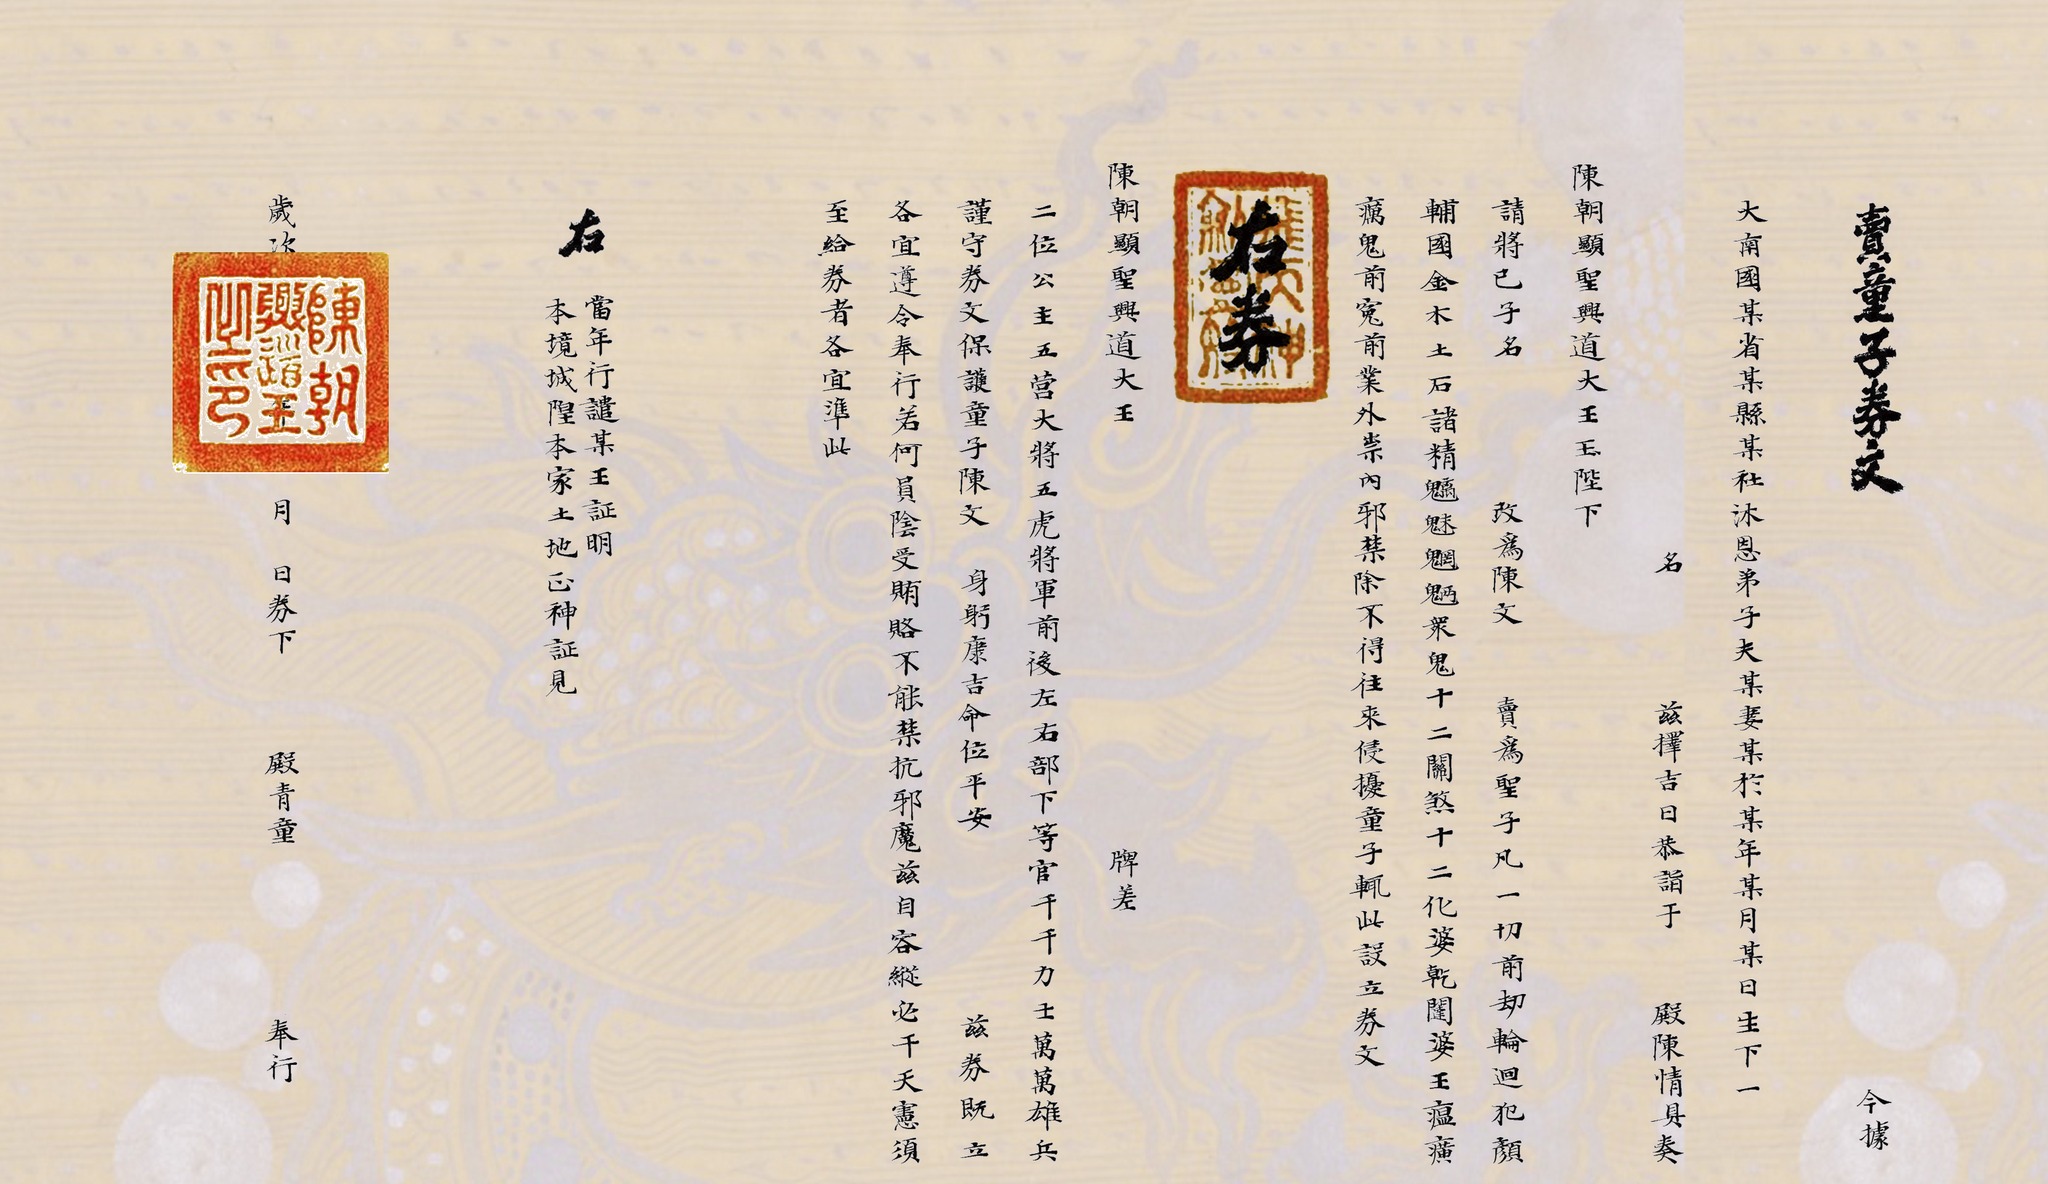 賣童子券文 今據
大南國某省某縣某社沐恩弟子夫某妻某於某年某月某日生下一
名 茲擇吉日恭詣于 殿陳情具奏
陳朝顯聖興道大王玉陛下
請將已子名 改爲陳文 賣爲聖子凡一切前劫輪迴犯顏
輔國金木土石諸精魑魅魍魎衆鬼十二關煞十二化婆乾闥婆王瘟㾮
癘鬼前冤前業外祟內邪禁除不得往來侵擾童子輒此設立券文
右券
陳朝顯聖興道大王 牌差
二位公主五营大將五虎將軍前後左右部下等官千千力士萬萬雄兵
謹守券文保護童子陳文 身躬康吉命位平安 茲券既立
各宜遵令奉行若何員陰受賄賂不能禁抗邪魔茲自容縱必干天憲須
至給券者各宜準此
右
當年行譴某王証明
本境城隍本家土地正神証見
歲次 月 日券下 殿青童 奉行
陳朝
興道王
之印